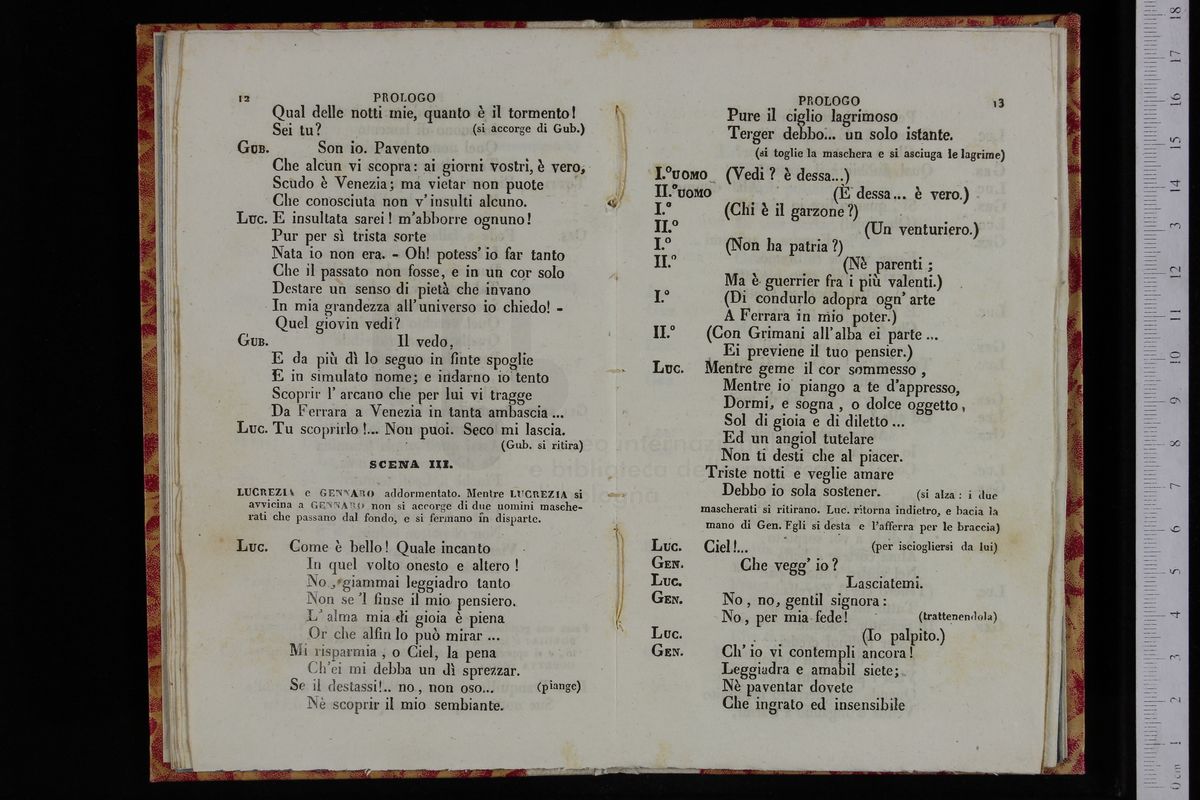 12 PROLOGO
Qual delle notti mie, quanto è il tormento!
Sei tu? (si accorge di Gub.)
GUB. Son io. Pavento
Che alcun vi scopra: ai giorni vostri, è vero,
Scudo è Venezia; ma vietar non puote
Che conosciuta non v'insulti alcuno.
LUC. E insultata sarei! m'abborre ognuno!
Pur per sì trista sorte
Nata io non era. - Oh! potess' io far tanto
Che il passato non fosse, e in un cor solo
Destare un senso di pietà che invano
In mia grandezza all'universo io chiedo! -
Quel giovin vedi?
GUB. Il vedo,
E da più dì lo seguo in finte spoglie
E in simulato nome; e indarno io tento
Scoprir l' arcano che per lui vi tragge
Da Ferrara a Venezia in tanta ambascia ...
LUC. Tu scoprirlo!... Non puoi. Seco mi lascia.
(Gub. si ritira)
SCENA III.
LUCREZIA e GENNARO addormentato. Mentre LUCREZIA si
avvicina a GENNARO non si accorge di due uomini masche-
rati che passano dal fondo, e si fermano in disparte.
LUC. Come è bello! Quale incanto
In quel volto onesto e altero!
No, giammai leggiadro tanto
Non se 'l finse il mio pensiero.
L' alma mia di gioia è piena
Or che alfin lo può mirar ...
Mi risparmia, o Ciel, la pena
Ch'ei mi debba un dì sprezzar.
Se il destassi!.. no, non oso... (piange)
Nè scoprir il mio sembiante.
PROLOGO 13
Pure il ciglio lagrimoso
Terger debbo... un solo istante.
(si toglie la maschera e si asciuga le lagrime)
I.º UOMO (Vedi? è dessa...)
II.º UOMO (È dessa... è vero.)
I.º (Chi è il garzone?)
II.º (Un venturiero.)
I.º (Non ha patria?)
II.º (Nè parenti;
Ma è guerrier fra i più valenti.)
I.º (Di condurlo adopra ogn' arte
A Ferrara in mio poter.)
II.º (Con Grimani all'alba ei parte ...
Ei previene il tuo pensier.)
LUC. Mentre geme il cor sommesso,
Mentre io piango a te d'appresso,
Dormi, e sogna, o dolce oggetto,
Sol di gioia e di diletto ...
Ed un angiol tutelare
Non ti desti che al piacer.
Triste notti e veglie amare
Debbo io sola sostener. (si alza: i due
mascherati si ritirano. Luc. ritorna indietro, e bacia la
mano di Gen. Egli si desta e l'afferra per le braccia)
LUC. Ciel!... (per isciogliersi da lui)
GEN. Che vegg' io?
LUC. Lasciatemi.
GEN. No, no, gentil signora:
No, per mia fede! (trattenendola)
LUC. (Io palpito.)
GEN. Ch' io vi contempli ancora!
Leggiadra e amabil siete;
Nè paventar dovete
Che ingrato ed insensibile